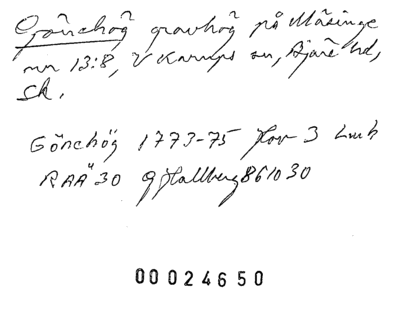 Gånehög gravhög på Måsinge
nr 13:8, V Karups sn, Bjäre hd,
Sk.
Gönehög 1773-75 Hov 3 Lmh
RAÄ 30 G Hallberg 861030
00024650